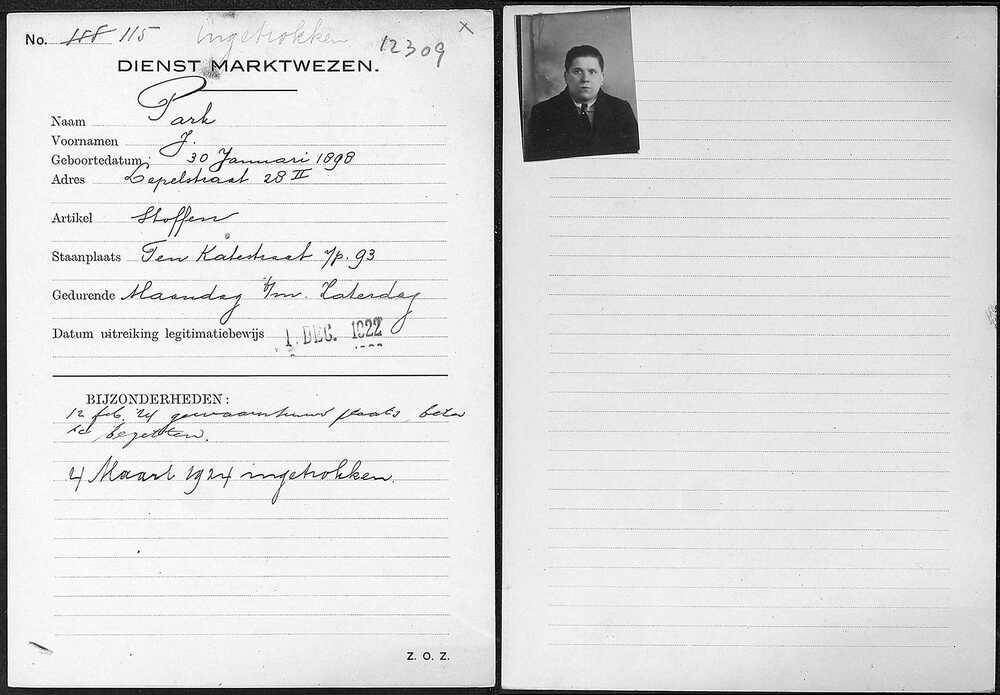 No. 188 115 Ingetrokken 12309 x
DIENST MARKTWEZEN.
Naam Park
Voornamen J.
Geboortedatum: 30 Januari 1898
Adres Lepelstraat 28 II
Artikel Stoffen
Staanplaats Ten Katestraat v/p. 93
Gedurende Maandag t/m. Zaterdag
Datum uitreiking legitimatiebewijs 1 DEC. 1922
BIJZONDERHEDEN:
12 feb. '24 gewaarschuwd plaats beter
te bezetten.
4 Maart 1924 ingetrokken.
Z. O. Z.